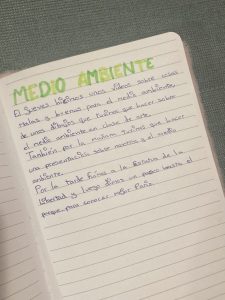 MEDIO AMBIENTE
El jueves hicimos unos vídeos sobre cosas
malas y buenas para el medio ambiente
de unos dibujos que tuvimos que hacer sobre
el medio ambiente en clase de arte.
También por la mañana tuvimos que hacer
una presentación sobre nosotros y el medio
ambiente.
Por la tarde fuimos a la Estatua de la
libertad y luego dimos un paseo hasta el
parque para conocer mejor París.